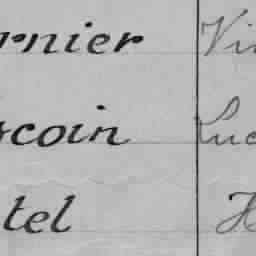 rnier Vi
scoin Luc
tel H